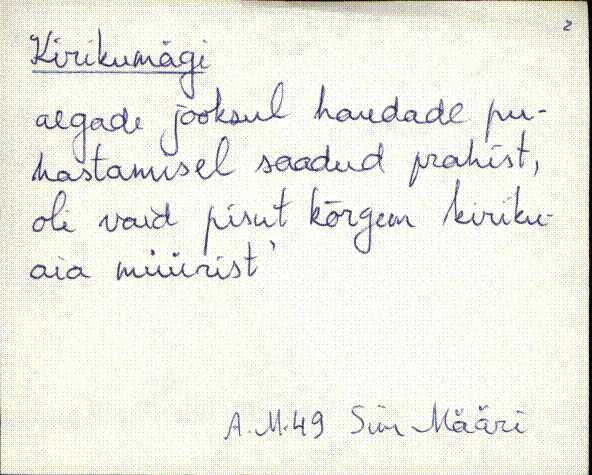 2
Kirikumägi
aegade jooksul haudade pu-
hastamisel saadud prahist,
oli vaid pisut kõrgem kiriku-
aia müürist'
A.M.49 Siim Määri